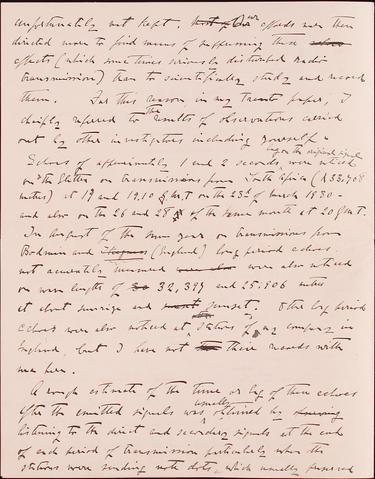 unfortunately not kept. Our efforts were then
directed more to find means of suppressing these
effects (which sometimes seriously disturbed radio
transmission) than to scientifically study and record
them. For this reason, in my paper, I
chiefly referred to the results of observations carried
out by other investigators including yourself.
Echoes of approximately 1 and 2 seconds were noticed
on the on transmissions from South Africa (
metres) at and 19.10 G.M.T on the 23d of March 1930 -
and also on the 26 and 28 of the same month at 20 G.M.T.
In August of the same year on transmissions from
Bodmin and (England) long period echoes,
not accurately measured were also noticed
on wave lengths of 32,397 and 25.906 metres
at about sunrise and sunset. Other long period
echoes were also noticed at stations of my company in
England, but I have not their records with
me here.
A rough estimate of the time or lag of these echoes
after the emitted signals was usually obtained by
listening to the direct and secondary signals at the end
of each period of transmission particularly when the
stations were sending dots, which usually preceded